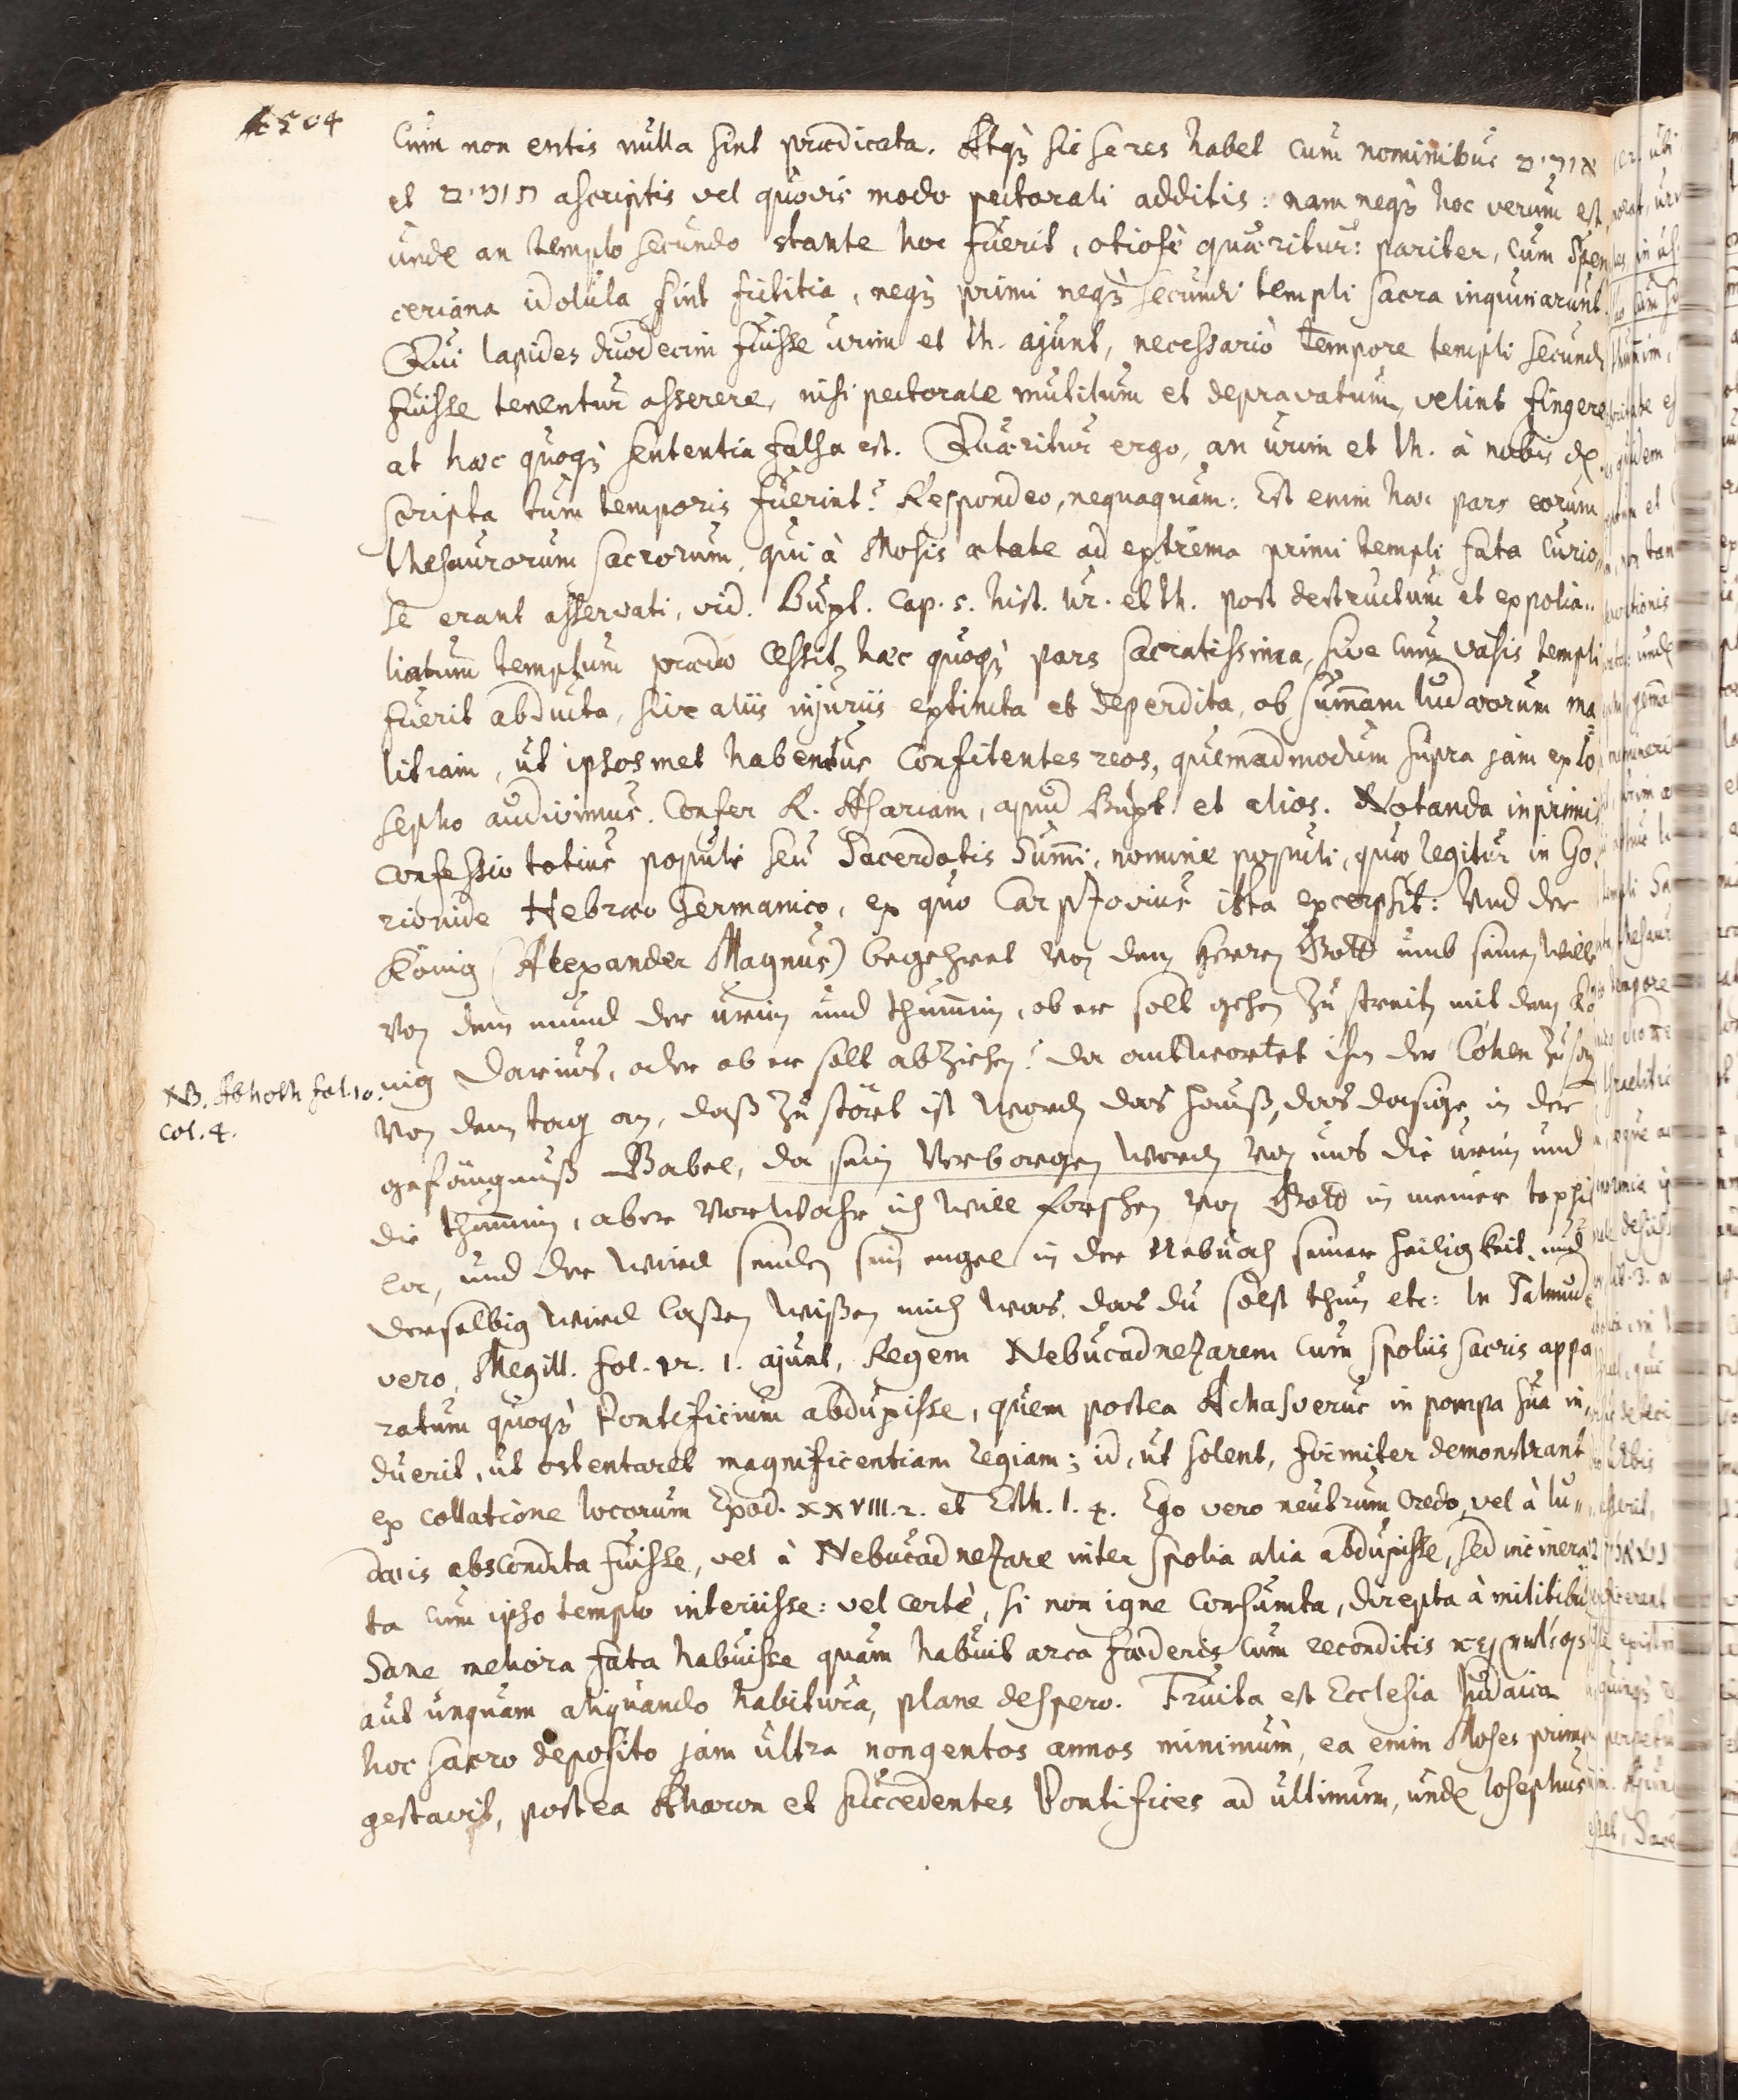 1504
Cum non entis nulla sint prædicata. Atqꝫ sic se res habet cum nominibus אורים
et תומים ascriptis vel quovis modo pectorali additis: nam neqꝫ hoc verum est,
unde an templo secundo stante hoc fuerit, otiosè quæritur: pariter, cum Spen
ceriana idolula sint fictitia, neqꝫ primi neqꝫ secundi templi sacra inquinarunt.
Qui lapides duodecim fuisse urim et th. ajunt, necessariò tempore templi secundi
fuisse tenentur asserere, nisi pectorale mutilum et depravatum velint fingere
at hæc quoqꝫ sententia falsa est. Quæritur ergo, an urim et th. à nobis de
scripta tum temporis fuerint? Respondeo, nequaquam: Est enim hæc pars eorum
thesaurorum sacrorum, qui à Mosis ætate ad extrema primi templi fata curio
se erant asservati, vid. Buxt. cap. 5. hist. Ur. et th. post destructum et expolia..
liatum templum prædæ cessit hæc quoqꝫ pars sacratissima, sive cum vasis templi
fuerit abducta, sive aliis injuriis extincta et deperdita, ob summam Iudæorum ma
litiam, ut ipsosmet habemus confitentes reos, quemadmodum supra jam ex Io
sepho audivimus. Confer R. Asariam, apud Buxt. et alios. Notanda inprimis
confessio totius populi seu Sacerdotis Summi, nomine populi, quæ legitur in Go
rionide Hebræo Germanico, ex quo Carpzovius ista excerpsit: Und der
König (Alexander Magnus) begehret von dem Herren Gott umb seinen wille
von dem mund der urim und thummim, ob er solt gehen zu streit mit dem Kö
nig Darius, oder ob er solt abziehen? da antwortet ihm der Cohen zu
NB. Abhoth fol. 10.
col. 4.
von dem tag an, daß zustört ist worden das Hauß, das dasige in der
gefängnuß Babel, da sein verborgen worden von uns die urim und
die thummim, aber vorwahr ich will forschen von Gott in meiner tephil
lor, und der wird senden sein engel in der Nebuah seiner heiligkeit, und
derselbig wird lassen wißen mich was, das du solst thun etc: In Talmude
vero, Megill. fol. 12. 1. ajunt, Regem Nebucadnezarem cum spoliis sacris appa
ratum quoqꝫ Pontificium abduxisse, quem postea Achasverus in pompa sua in,,
duerit, ut ostentaret magnificentiam regiam; id, ut solent, firmiter demonstrant
ex collatione locorum Exod. XXVIII. 2. et Esth. 1. 4. Ego vero neutrum credo, vel à Iu,,
dæis abscondita fuisse, vel à Nebucadnezare inter spolia alia abduxisse, sed incinera
ta cum ipso templo interiisse: vel certè, si non igne consumta, direpta à militibus
Sane meliora fata habuisse quam habuit arca fœderis cum reconditis κειμηλίοις
aut unquam aliquando habitura, plane despero. Fruita est Ecclesia Iudaica
hoc sacro deposito jam ultra nongentos annos minimum, ea enim Moses primus
gestavit, postea Aharon et succedentes Pontifices ad ultimum, unde Iosephus